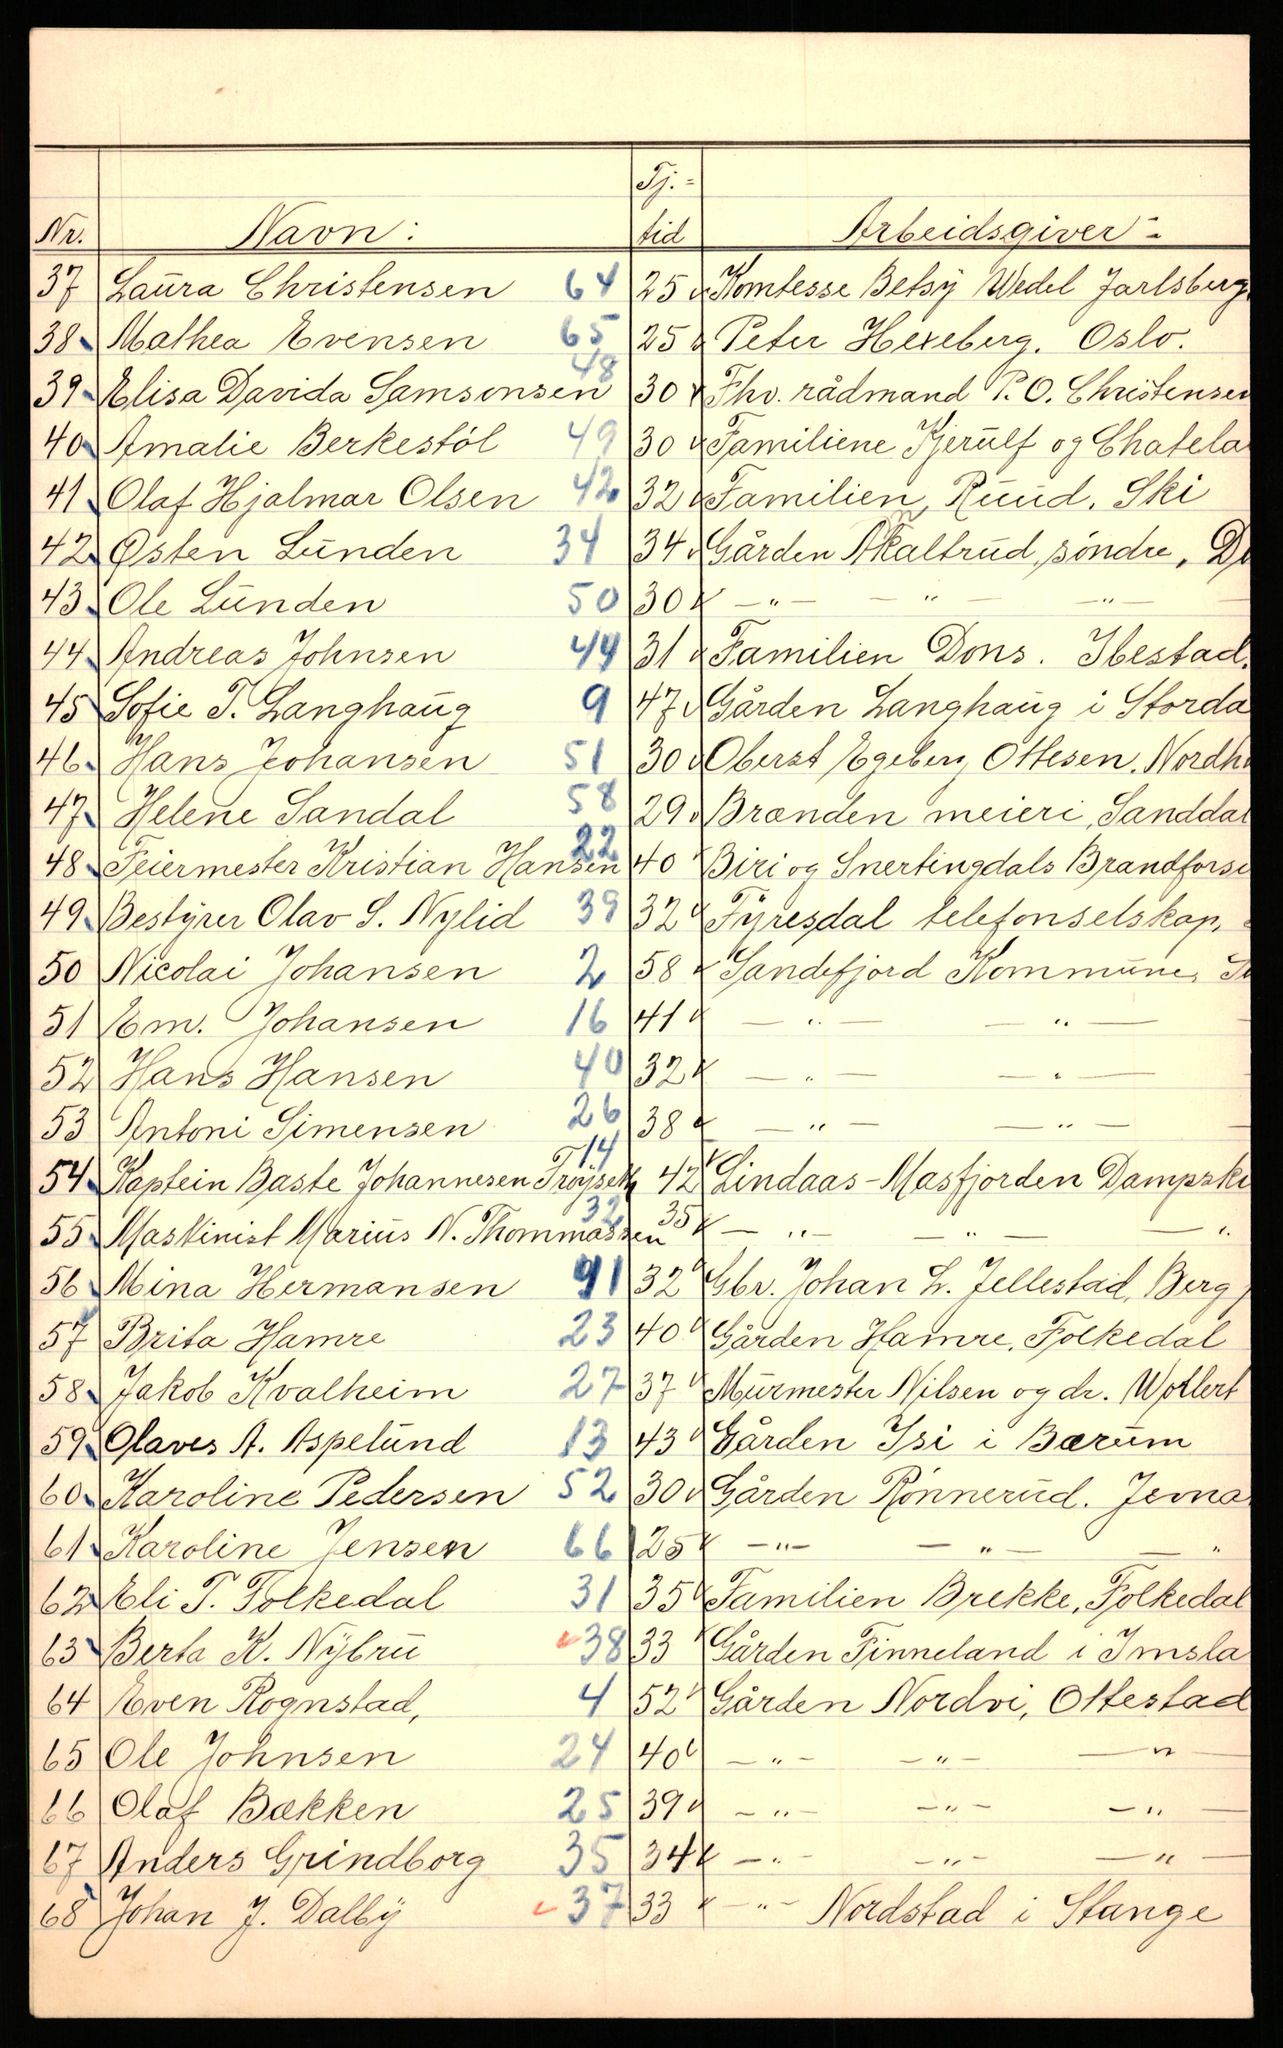 Nr. Navn: Tj.= tid Arbeidsgiver =
37 Laura Christensen 64 25 Komtesse Betsy Wedel Jarlsberg
38 Mathea Evensen 65 25 Peter Hexeberg. Oslo.
39 Elisa Davida Samsonsen 48 30 Fhv. rådmand P.O. Christensen
40 Amalie Berkestöl 49 30 Familiene Kjerulf og Chatela
41 Olaf Hjalmar Olsen 42 32 Familien Ruud. Ski
42 Østen Lunden 34 34 Gården søndre,
43 Ole Lunden 50 30 — " — — " — — " —
44 Andreas Johnsen 44 31 Familien Dons. Ibestad.
45 Sofie T. Langhaug 9 47 Gården Langhaug i Storda
46 Hans Johansen 51 30 Oberst Egeberg Ottesen. Nordh
47 Helene Sandal 58 29 Brænden meieri, Sanddal
48 Feiermester Kristian Hansen 22 40 Biri og Snertingdals Brandforsi
49 Bestyrer Olav S. Nylid 39 32 Fyresdal telefonselskap,
50 Nicolai Johansen 2 58 Sandefjord Kommune,
51 Em. Johansen 16 41 — " — — " —
52 Hans Hansen 40 32 — " — — " —
53 Antoni Simensen 26 38 — " — — " —
54 Kaptein Baste Johannesen Tröyseth 14 42 Lindaas-Masfjorden Dampski
55 Maskinist Marius N. Thommassen 32 35 — " — — " — — "
56 Mina Hermansen 41 32 Gbr. Johan L. Jellestad, Berg
57 Brita Hamre 23 40 Gården Hamre, Folkedal
58 Jakob Kvalheim 27 37 Murmester Nilsen og dr. Wollert
59 Olaves A. Aspelund 13 43 Gården Isi i Bærum
60 Karoline Pedersen 52 30 Gården Rönnerud. Jevna
61 Karoline Jensen 66 25 — " — — " — — "
62 Eli T. Folkedal 31 35 Familien Brekke, Folkedal
63 Berta K. Nybru 38 33 Gården Finneland i Imsla
64 Even Rognstad, 4 52 Gården Nordvi, Ottestad
65 Ole Johnsen 24 40 — " — — " — — " —
66 Olaf Bækken 25 39 — " — — " — — " —
67 Anders Grindborg 35 34 — " — — " — — " —
68 Johan J. Dalby 37 33 — " — Nordstad i Stange